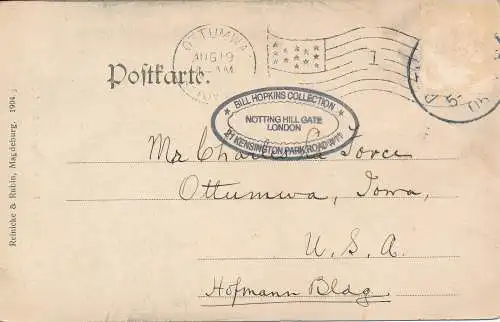 OTTUMWA
AUG 19
AM
IOWA
1
Postkarte.
BILL HOPKINS COLLECTION
NOTTING HILL GATE
LONDON
21 KENSINGTON PARK ROAD W11
Mr Charles La Force
Ottumwa, Iowa,
U. S. A.
Hofmann Bldg.
Reinicke & Rubin, Magdeburg. 1904